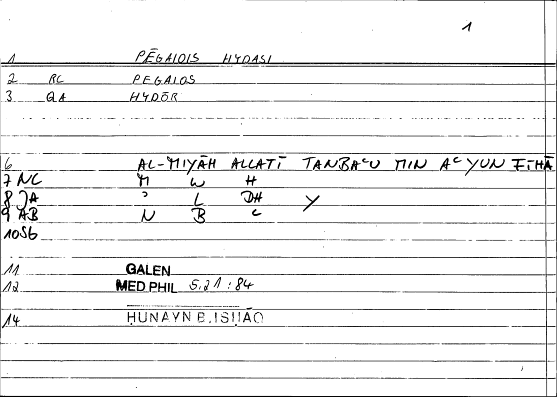 1
1 PĒGAIOIS HYDASI
2 RC PEGAIOS
3 QA HYDŌR
6 AL-MIYĀH ALLATĪ TANBAʿU MIN AʿYUN FĪHĀ
7 NC M W H
8 JA ʾ L DH Y
9 AB N B ʿ
10 SG
11 GALEN
12 MED PHIL 5,21:84
14 ḤUNAYN B. ISḤĀQ